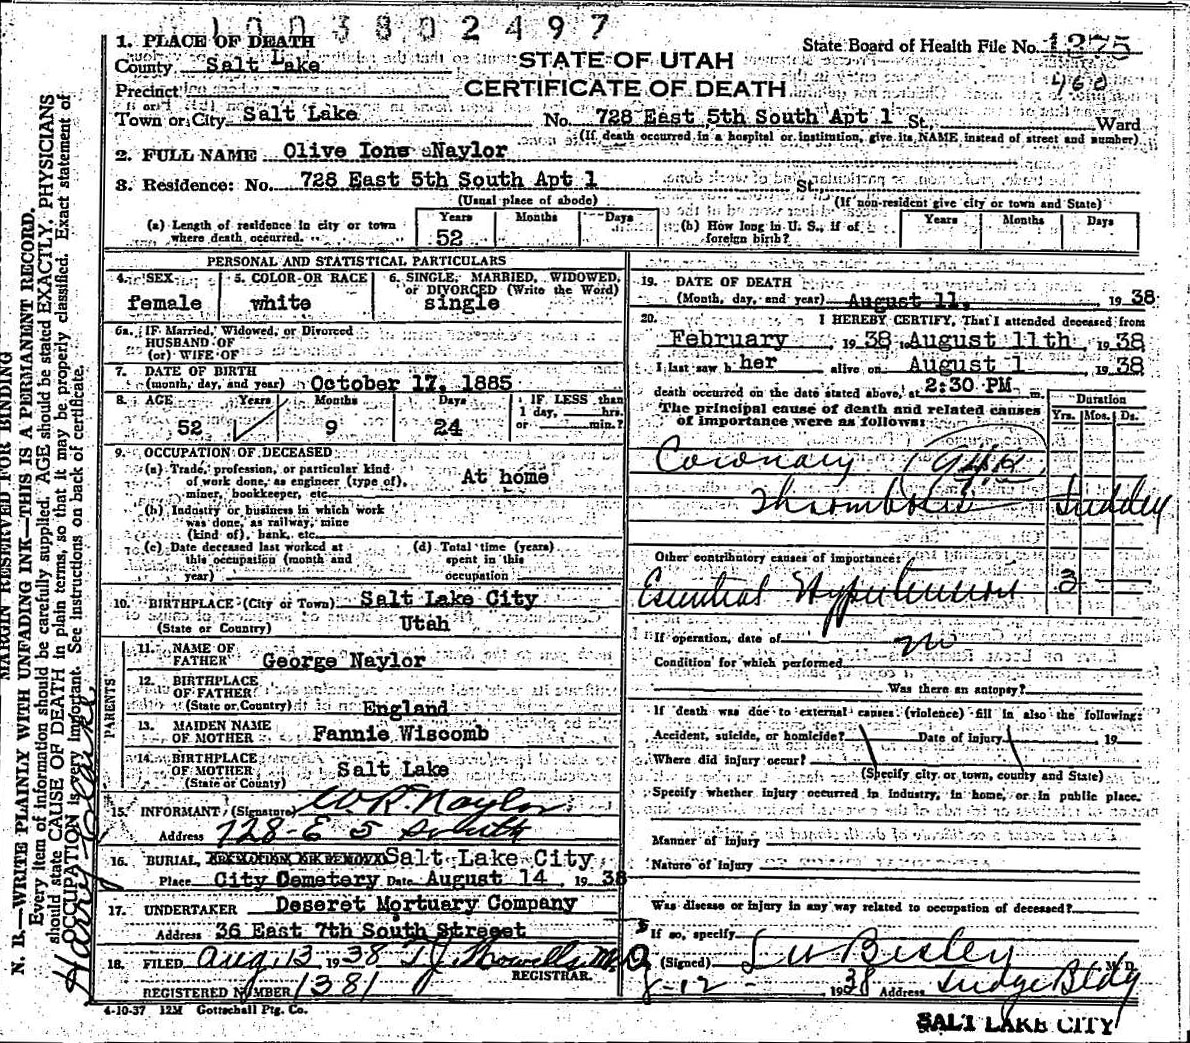 1003802497
1. PLACE OF DEATH
County Salt Lake
STATE OF UTAH
State Board of Health File No. 1375
Precinct
CERTIFICATE OF DEATH
460
Town or City Salt Lake No. 728 East 5th South Apt 1 St. Ward
(If death occurred in a hospital or institution, give its NAME instead of street and number)
2. FULL NAME Olive Ione Naylor
3. Residence: No. 728 East 5th South Apt 1 St.
(Usual place of abode) (If non-resident give city or town and State)
(a) Length of residence in city or town where death occurred. Years 52 Months Days
(b) How long in U. S., if of foreign birth? Years Months Days
PERSONAL AND STATISTICAL PARTICULARS
4. SEX female
5. COLOR OR RACE white
6. SINGLE, MARRIED, WIDOWED, or DIVORCED (Write the Word) single
6a. IF Married, Widowed, or Divorced
HUSBAND OF
(or) WIFE OF
7. DATE OF BIRTH
(month, day, and year) October 17, 1885
8. AGE Years Months Days IF LESS than
1 day, hrs.
52 9 24 or min.?
9. OCCUPATION OF DECEASED
(a) Trade, profession, or particular kind
of work done, as engineer (type of), At home
miner, bookkeeper, etc.
(b) Industry or business in which work
was done, as railway, mine
(kind of), bank, etc.
(c) Date deceased last worked at
this occupation (month and
year)
(d) Total time (years)
spent in this
occupation
10. BIRTHPLACE (City or Town) Salt Lake City
(State or Country) Utah
PARENTS
11. NAME OF
FATHER George Naylor
12. BIRTHPLACE
OF FATHER
(State or Country) England
13. MAIDEN NAME
OF MOTHER Fannie Wiscomb
14. BIRTHPLACE
OF MOTHER Salt Lake
(State or County)
15. INFORMANT (Signature) W R Naylor
Address 728-E 5 South
16. BURIAL, Salt Lake City
Place City Cemetery Date August 14, 1938
17. UNDERTAKER Deseret Mortuary Company
Address 36 East 7th South Streset
18. FILED Aug. 13 1938 T J Howells M.D.
REGISTRAR.
REGISTERED NUMBER 1381
4-10-37 12M Gottschall Ptg. Co.
19. DATE OF DEATH
(Month, day, and year) August 11, 1938
20. I HEREBY CERTIFY, That I attended deceased from
February 1938 to August 11th, 1938
I last saw her alive on August 1, 1938
death occurred on the date stated above, at 2:30 PM m.
The principal cause of death and related causes
of importance were as follows:
Duration
Yrs. Mos. Ds.
Coronary 94B
Thrombosis Sudden
Other contributory causes of importance:
Essential Hypertension 3
If operation, date of no
Condition for which performed
Was there an autopsy?
If death was due to external causes (violence) fill in also the following:
Accident, suicide, or homicide? Date of injury 19
Where did injury occur?
(Specify city or town, county and State)
Specify whether injury occurred in industry, in home, or in public place.
Manner of injury
Nature of injury
Was disease or injury in any way related to occupation of deceased?
If so, specify
(Signed) M. D.
8-12- 1938 Address Judge Bldg
SALT LAKE CITY
MARGIN RESERVED FOR BINDING
N. B.—WRITE PLAINLY WITH UNFADING INK—THIS IS A PERMANENT RECORD.
Every item of information should be carefully supplied. AGE should be stated EXACTLY. PHYSICIANS
should state CAUSE OF DEATH in plain terms, so that it may be properly classified. Exact statement of
OCCUPATION is very important. See instructions on back of certificate.